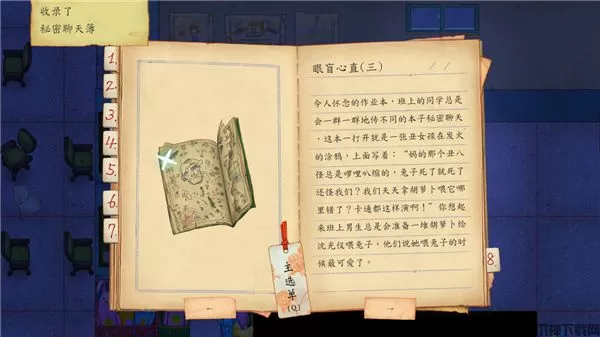 收录了
秘密聊天薄
1.
2.
3.
4.
5.
6.
7.
眼盲心直(三)
令人怀念的作业本，班上的同学总是
会一群一群地传不同的本子秘密聊天
，这本一打开就是一张丑女孩在发火
的涂鸦，上面写着：“妈的那个丑八
怪总是哕哩叭缩的，兔子死了就死了
还怪我们？我们天天拿胡萝卜喂它哪
里错了？卡通都这样演啊！”你想起
来班上男生总是会准备一堆胡萝卜给
沈允仪喂兔子，他们说她喂兔子的时
候最可爱了。
主选单
(Q)
8.